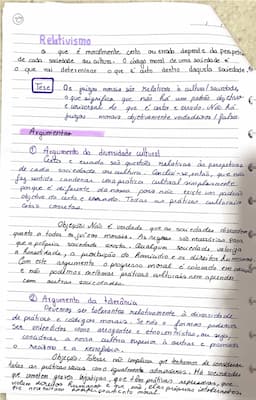 Relativismo
o que é moralmente certo ou errado depende da perspetiva
de cada sociedade ou cultura. O código moral de uma sociedade é
o que vai determinar o que é certo dentro daquela sociedade.
Tese: Os juízos morais são relativos à cultura/sociedade
o que significa que não há um padrão objetivo e
universal do que é certo e errado. Não há
juízos morais objetivamente verdadeiros/falsos.
Argumentos
① Argumento da diversidade cultural
Certo e errado são questões relativas às perspetivas
de cada sociedade ou cultura. Conclui-se, então, que não
faz sentido condenar uma prática cultural simplesmente
porque é diferente da nossa, pois não existe um padrão
objetivo de certo e errado. Todas as práticas culturais
estão corretas.
Objeção: Não é verdade que as sociedades discordem
quanto a todos os juízos morais. As regras são necessárias para
que a própria sociedade exista. Qualquer sociedade valoriza
a honestidade, a proibição do homicídio e os direitos humanos
Com este argumento o progresso moral é colocado em causa
e não podemos melhorar práticas culturais nem aprender
com outras sociedades.
② Argumento da tolerância
Devemos ser tolerantes relativamente à diversidade
de práticas e códigos morais. Se não o formos, podemos
ser entendidos como arrogantes e etnocentristas, ou seja,
considerar a nossa cultura superior à outras e promover
o racismo e a xenofobia.
Objeção: Tolerar não implica que tenhamos de considerar
todas as práticas sociais como igualmente admiráveis. Há sociedades
que cometem graves injustiças, que têm práticas
violam direitos humanos e que são
moral.